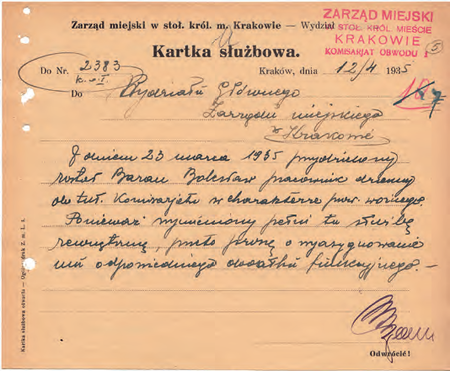 Zarząd miejski w stoł. król. m. Krakowie — Wydział
ZARZĄD MIEJSKI
W STOŁ. KRÓL. MIEŚCIE
KRAKOWIE
KOMISARJAT OBWODU I
5
Kartka służbowa.
Do Nr. 2383
Kraków, dnia 12/4 1935
Do Wydziału Głównego
Zarządu miejskiego
w Krakowie
Z dniem 23 marca 1935 przydzielony
został Baran Bolesław pracownik dzienny
do tut. Komisarjatu w charakterze pom. woźnego.
Ponieważ wymieniony pełni tu służbę
zewnętrzną, przeto proszę o wyasygnowanie
mu odpowiedniego dodatku funkcyjnego.—
Odwrócić!
Kartka służbowa otwarta — Ogólny druk Z. m. L. 2.